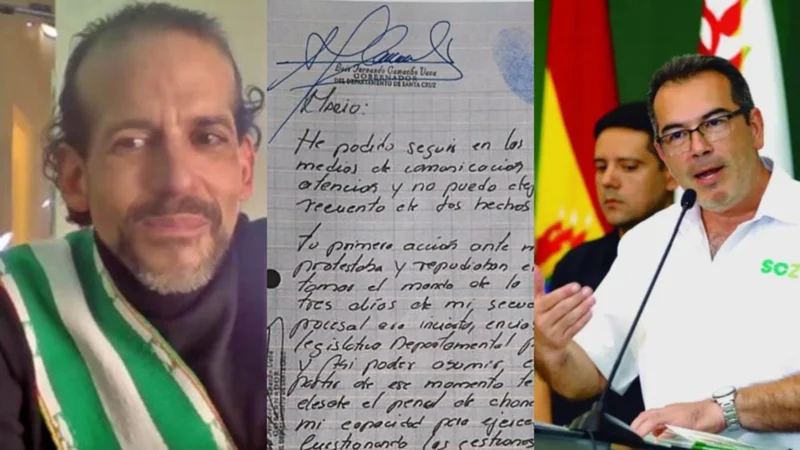 Luis Fernando Camacho Vaca
GOBERNADOR
DEL DEPARTAMENTO DE SANTA CRUZ
Mario:
He podido seguir en los
medios de comunicación
atención y no puedo dej
recuento de dos hechos
Tu primera acción ante m
protestaba y repudiaban e
tomar el mando de la
tres días de mi secue
procesal era incierto, envia
legislativo Departamental p
y Así poder asumir, c
partir de ese momento te
desde el penal de chon
mi capacidad para ejerce
Cuestionando las gestiones
SCZ